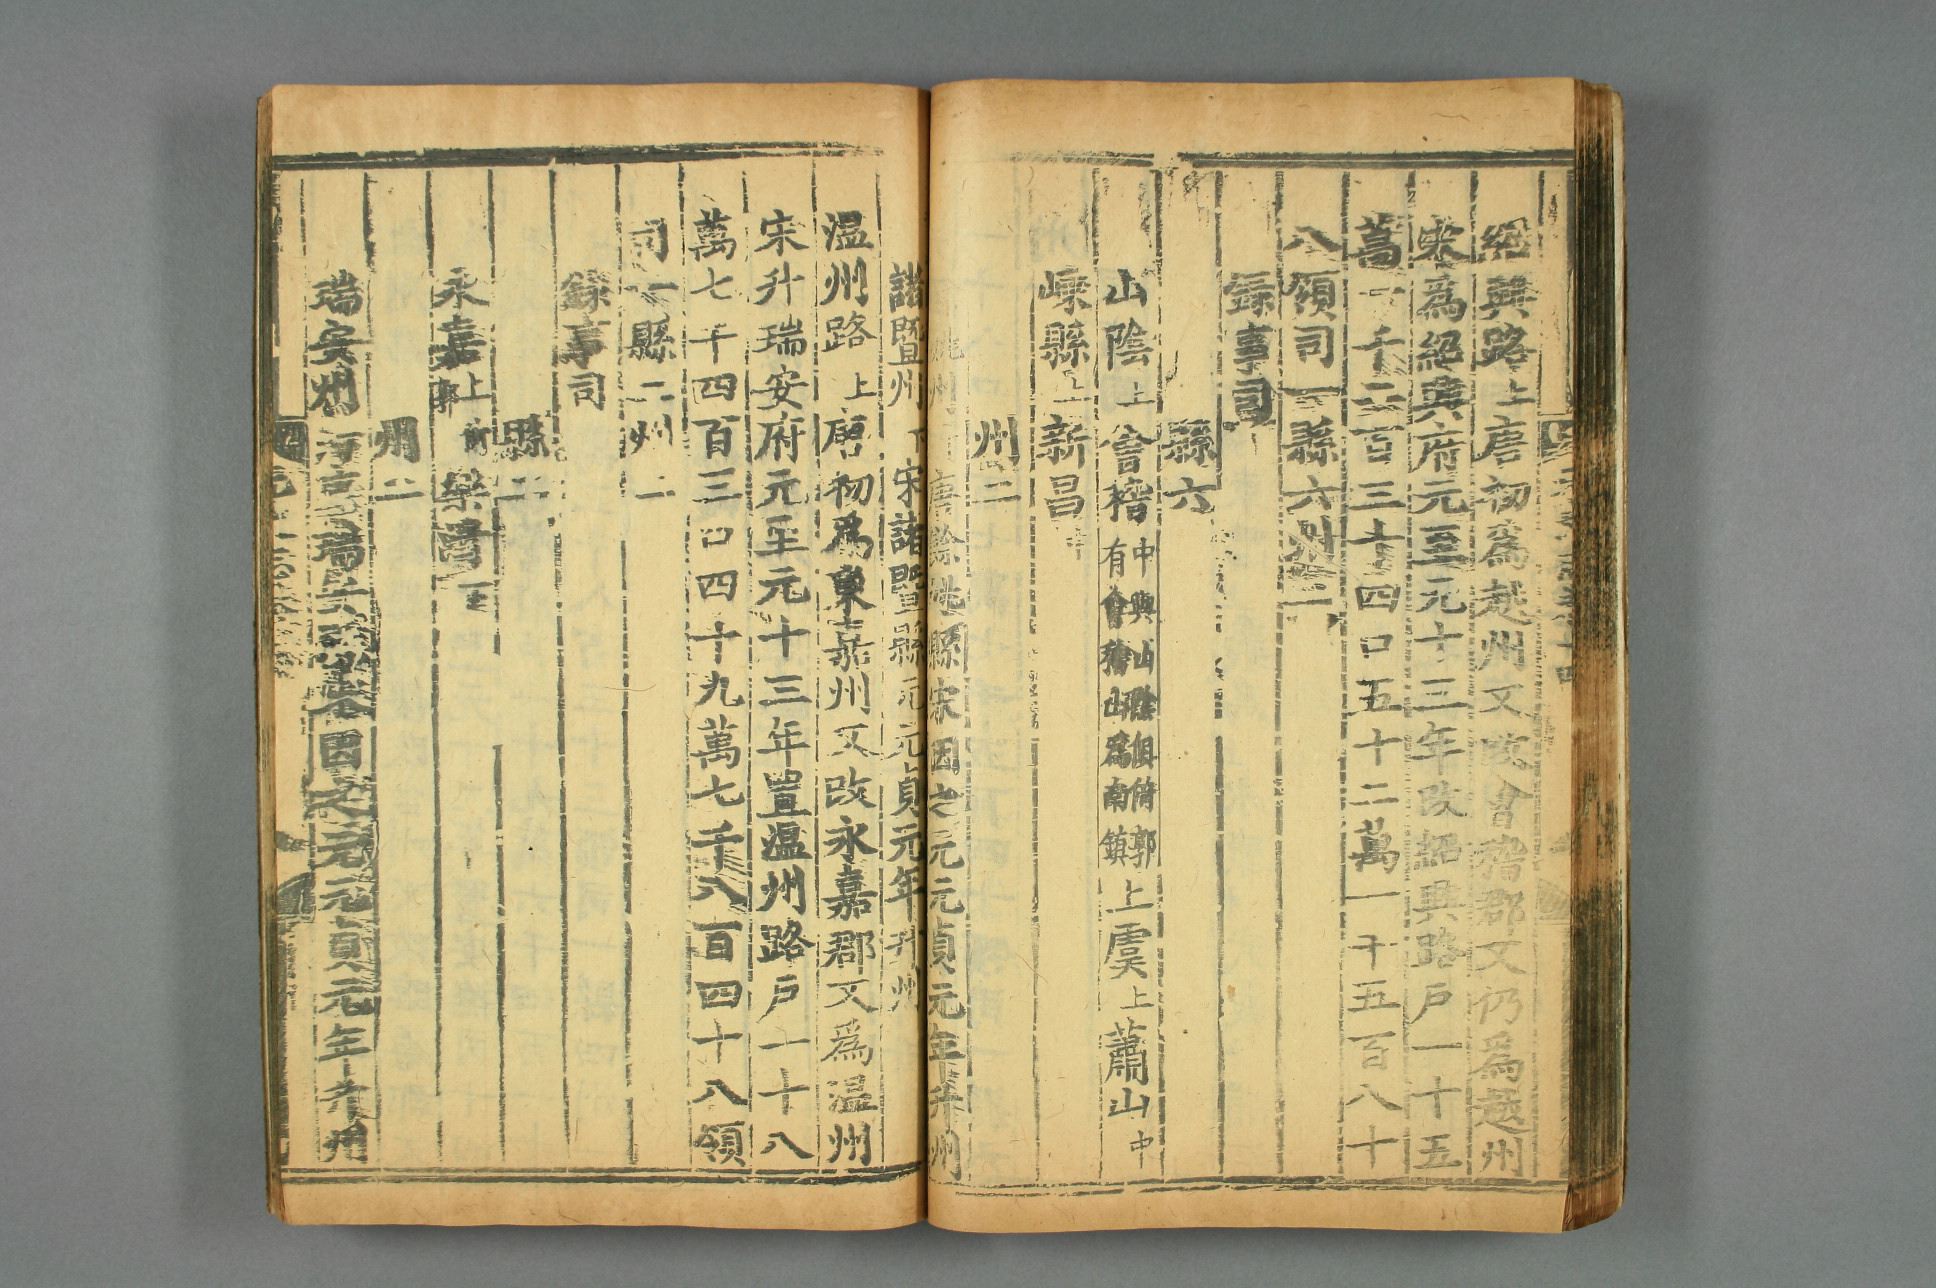 紹興路上唐初爲越州又改會稽郡又仍爲越州
宋爲紹興府元至元十三年改紹興路戶一十五
萬一千二百三十四口五十二萬一千五百八十
八領司一縣六州二
錄事司
縣六
山陰上會稽中興山陰俱倚郭有會稽山爲南鎮上虞上蕭山中
嵊縣上新昌
州二
姚州唐餘姚縣宋因之元元貞元年升州
諸暨州下宋諸暨縣元元貞元年升州
溫州路上唐初爲東嘉州又改永嘉郡又爲溫州
宋升瑞安府元至元十三年置溫州路戶一十八
萬七千四百三口四十九萬七千八百四十八領
司一縣二州二
錄事司
縣二
永嘉上郭樂
州二
瑞安州因之元元貞元年升州